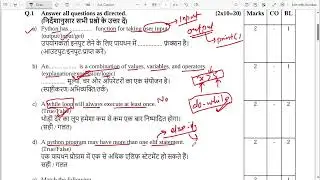 Q.1 Answer all questions as directed. (2x10=20) Marks CO BL
(निर्देशानुसार सभी प्रश्नों के उत्तर दें)
a) Python has ........ function for taking user input. 2 - 1
(output/input/get)
→ input
→ output
print()
उपयोगकर्ता इनपुट लेने के लिए पायथन में ........ फ़ंक्शन है।
(आउटपुट/इनपुट/प्राप्त करें)
b) An ........ is a combination of values, variables, and operators 2 - 1
(explanation/expression/logic)
........ मूल्यों, चर और ऑपरेटरों का एक संयोजन है।
(स्पष्टीकरण/अभिव्यक्ति/तर्क)
c) A while loop will always execute at least once. No 2 - 2
(True/False)
do-while
थोड़ी देर का लूप हमेशा कम से कम एक बार निष्पादित होगा।
(सही / गलत)
else if
d) A python program may have more than one elif statement. 2 - 2
(True/False)
एक पायथन प्रोग्राम में एक से अधिक एलिफ़ स्टेटमेंट हो सकते हैं।
(सही / गलत)